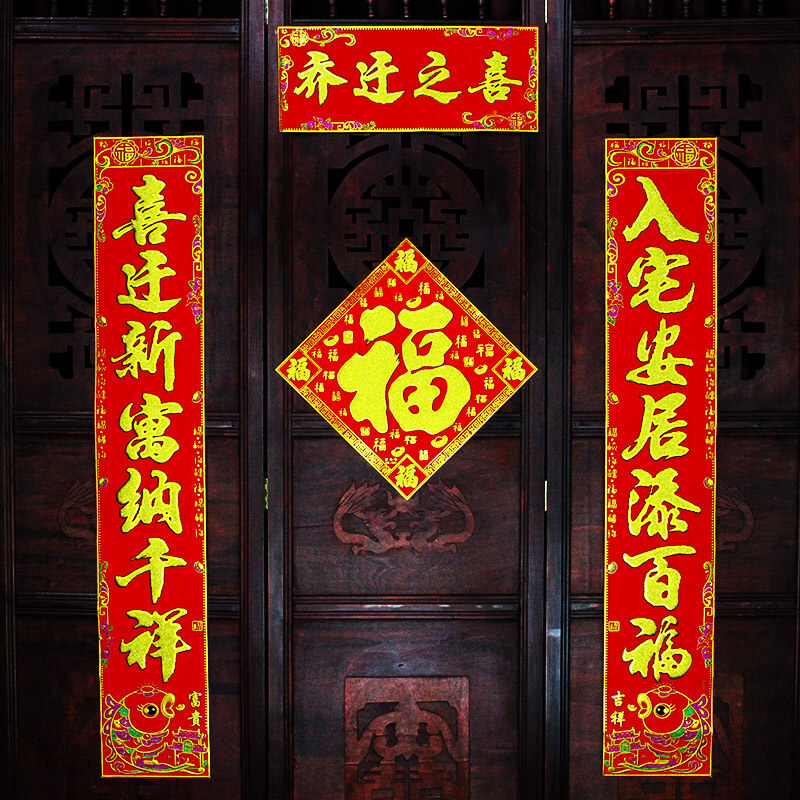 乔迁之喜
入宅安居添百福
吉祥
喜迁新寓纳千祥
富贵
福
福
福
福
福